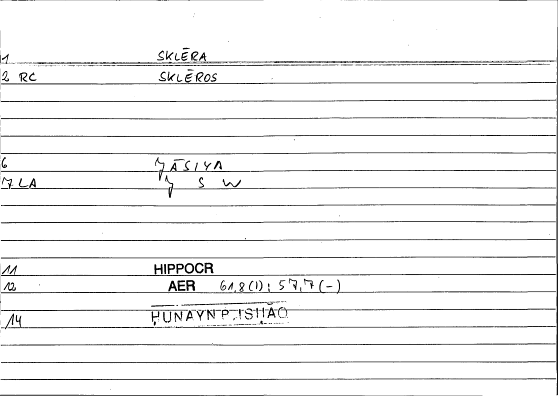 1 SKLĒRA
2 RC SKLĒROS
6 ʿĀSIYA
7 LA ʿ S W
11 HIPPOCR
12 AER 61,8(1); 57,7(-)
14 ḤUNAYN B. ISḤĀQ